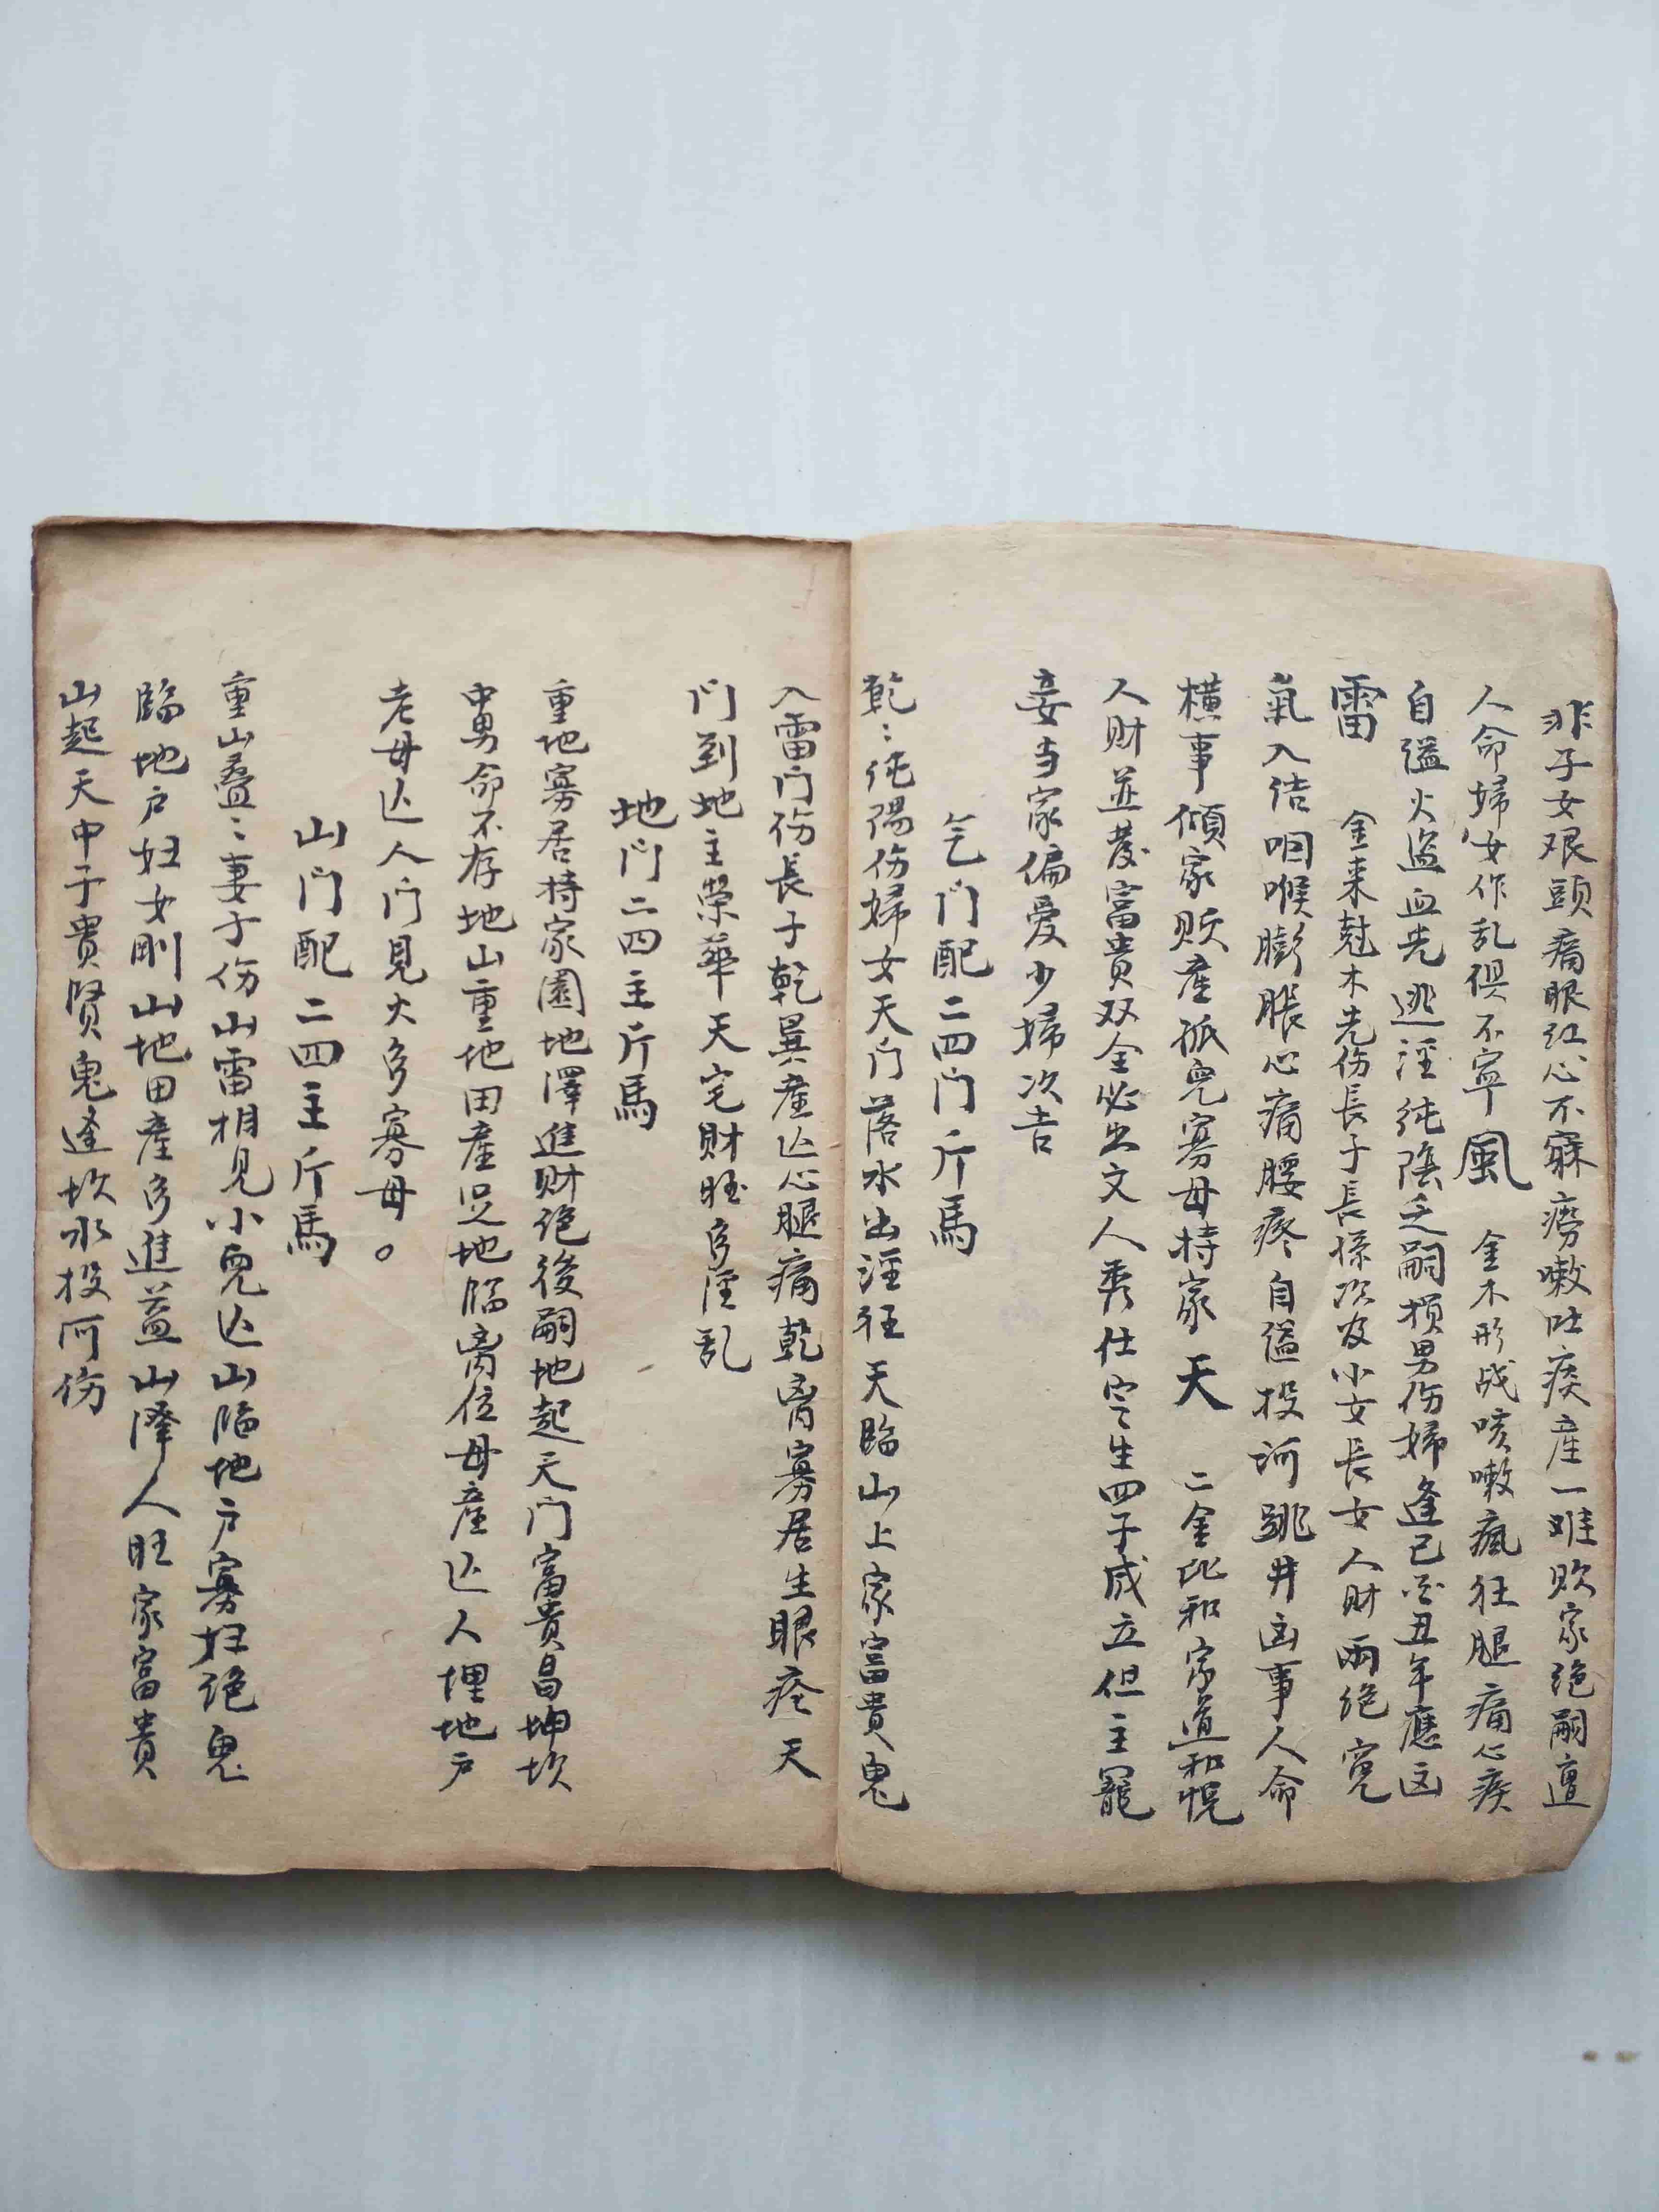 非子女艰頭痛眼红心不寐痨嗽吐痰産一难败家绝嗣
人命婦女作乱俱不寧風 金木形战咳嗽瘋狂腿痛心疾
自縊火盗血光逃淫纯陰乏嗣损男伤婦逢己丑年應凶
雷 金来尅木先伤長子長孫次及小女長女人财両绝
氣入咭咽喉膨脹心痛腰疼自縊投河跳井凶事人命
橫事傾家贩産孤兒寡母持家 天 二金比和家道和悦
人财並發富貴双全必出文人秀仕定生四子成立但主寵
妾当家偏爱少婦次吉
乞门配二四门斤馬
乾:纯陽伤婦女天门落水出淫狂天臨山上家富貴鬼
入雷门伤長子乾巽産亡心腿痛乾离寡居生眼疾天
门到地主榮華天宅财旺多淫乱
地门二四主斤馬
重地寡居持家園地澤進财绝後嗣地起天门富貴昌坤坎
中男命不存地山重地田産足地臨离位母産亡人埋地户
老母亡人门見火多寡母。
山门配二四主斤馬
重山疊:妻子伤山雷相見小兒亡山臨地户寡妇绝鬼
臨地户妇女剛山地田産多進益山澤人旺家富貴
山起天中子貴贤鬼逢坎水投河伤